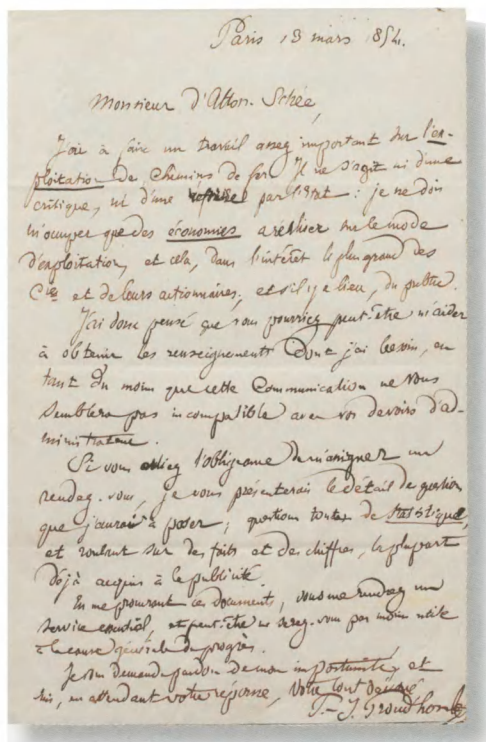 Paris 13 mars 1854.
Monsieur d'Alton-Schée,
J'ai à faire un travail assez important sur l'ex-
ploitation de chemins de fer. Il ne s'agit ni d'une
critique, ni d'une par l'état : je ne dois
m'occuper que des économies à réaliser sur le mode
d'exploitation, et cela, dans l'intérêt le plus grand des
Cies et de leurs actionnaires, et s'il y a lieu, du public.
J'ai donc pensé que vous pourriez peut-être m'aider
à obtenir les renseignements dont j'ai besoin, en
tant du moins que cette communication ne vous
semblera pas incompatible avec vos devoirs d'ad-
ministrateur.
Si vous aviez l'obligeance de m'assigner un
rendez-vous, je vous présenterais le détail de question
que j'aurais à poser ; questions toutes de statistique,
et roulant sur des faits et des chiffres, la plupart
déjà acquis à la publicité.
En me procurant ces documents, vous me rendez un
service cordial, et peut-être ne serez-vous pas moins utile
à la cause générale du progrès.
Je vous demande pardon de mon importunité, et
suis, en attendant votre réponse, Votre tout dévoué
P.-J. Proudhon